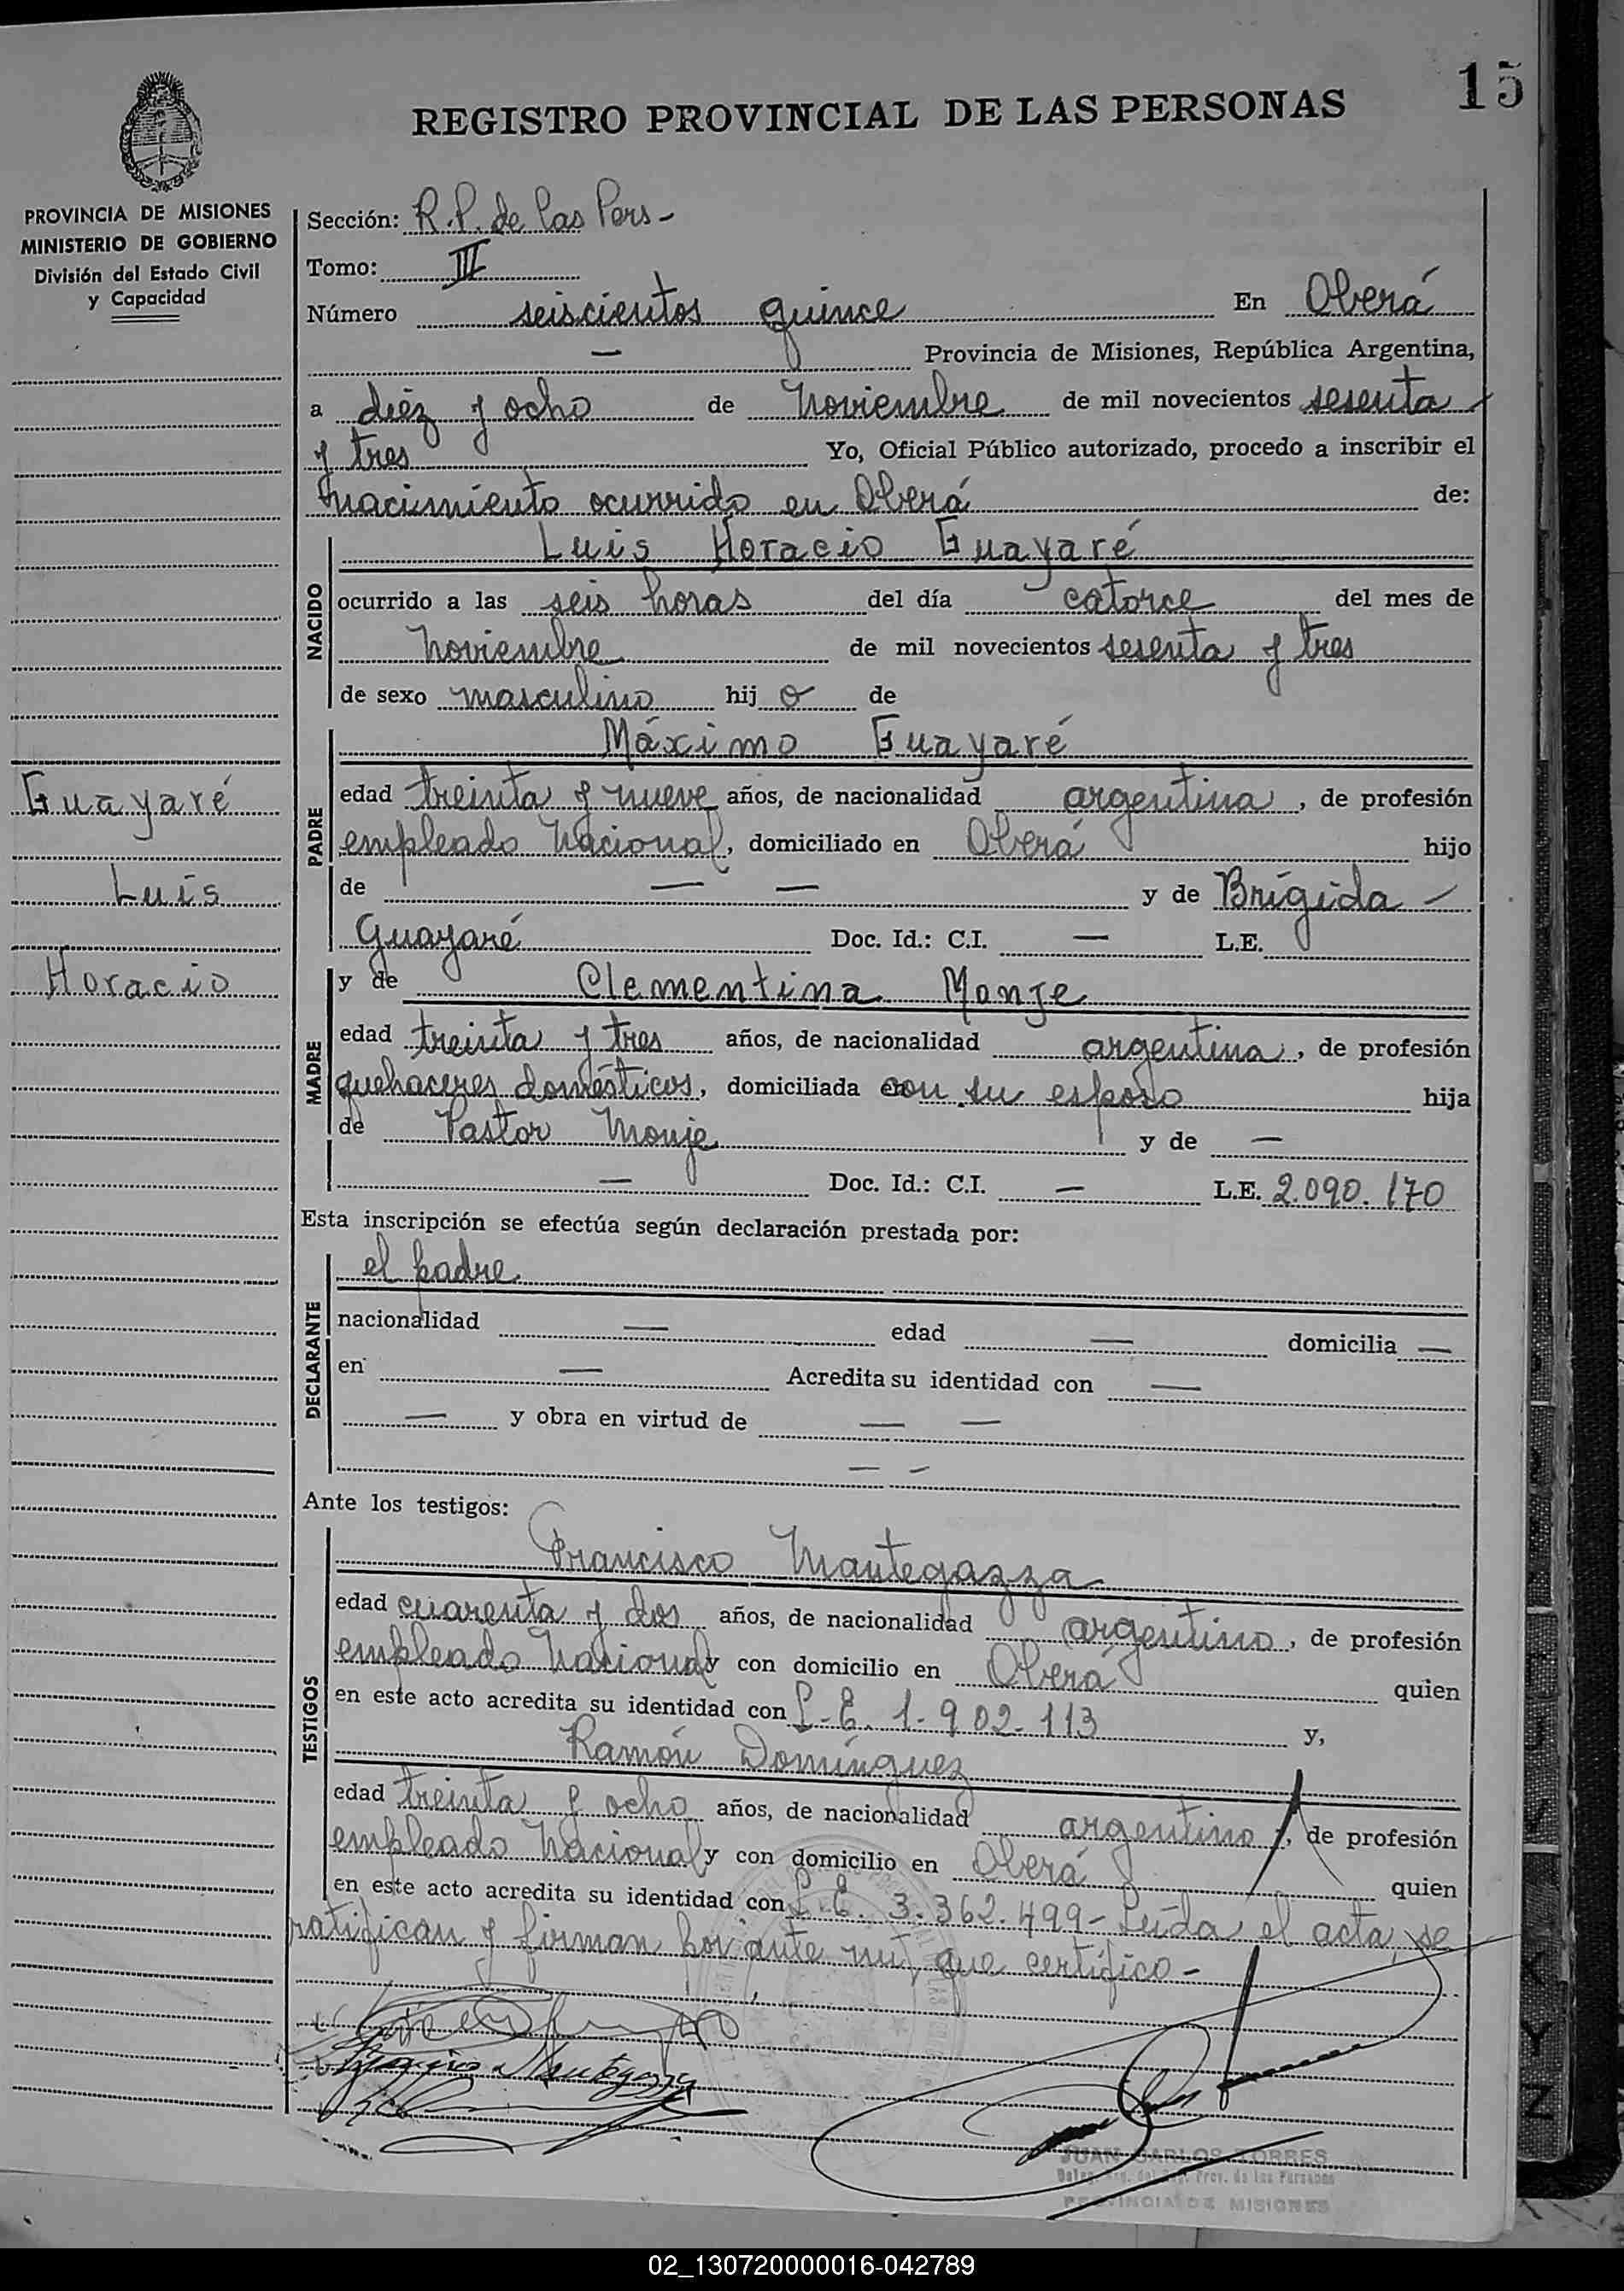 15
REGISTRO PROVINCIAL DE LAS PERSONAS
PROVINCIA DE MISIONES
MINISTERIO DE GOBIERNO
División del Estado Civil
y Capacidad
Guayaré
Luis
Horacio
Sección: R.P. de las Pers-
Tomo: III
Número seiscientos quince En Oberá
— Provincia de Misiones, República Argentina,
a diéz y ocho de Noviembre de mil novecientos sesenta
y tres Yo, Oficial Público autorizado, procedo a inscribir el
nacimiento ocurrido en Oberá de:
NACIDO
Luis Horacio Guayaré
ocurrido a las seis horas del día catorce del mes de
Noviembre de mil novecientos sesenta y tres
de sexo masculino hij o de
PADRE
Máximo Guayaré
edad treinta y nueve años, de nacionalidad argentina, de profesión
empleado Nacional, domiciliado en Oberá hijo
de — — y de Brígida —
Guayaré Doc. Id.: C.I. — L.E.
MADRE
y de Clementina Monje
edad treinta y tres años, de nacionalidad argentina, de profesión
quehaceres domésticos, domiciliada con su esposo hija
de Pastor Monje y de —
— Doc. Id.: C.I. — L.E. 2.090.170
Esta inscripción se efectúa según declaración prestada por:
DECLARANTE
el padre
nacionalidad — edad — domicilia —
en — Acredita su identidad con —
— y obra en virtud de — —
— —
Ante los testigos:
TESTIGOS
Francisco Mantegazza
edad cuarenta y dos años, de nacionalidad argentino, de profesión
empleado Nacional y con domicilio en Oberá quien
en este acto acredita su identidad con L.E. 1.902.113 y,
Ramón Domínguez
edad treinta y ocho años, de nacionalidad argentino, de profesión
empleado Nacional y con domicilio en Oberá quien
en este acto acredita su identidad con L.E. 3.362.499- Leída el acta, se
ratifican y firman por ante mí, que certifico-
JUAN CARLOS TORRES
Prov. de las Personas
PROVINCIA DE MISIONES
X
Y
Z
02_130720000016-042789